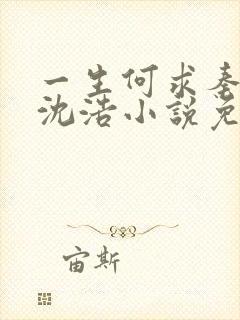 一生何求秦
沈浩小說免
宙斯